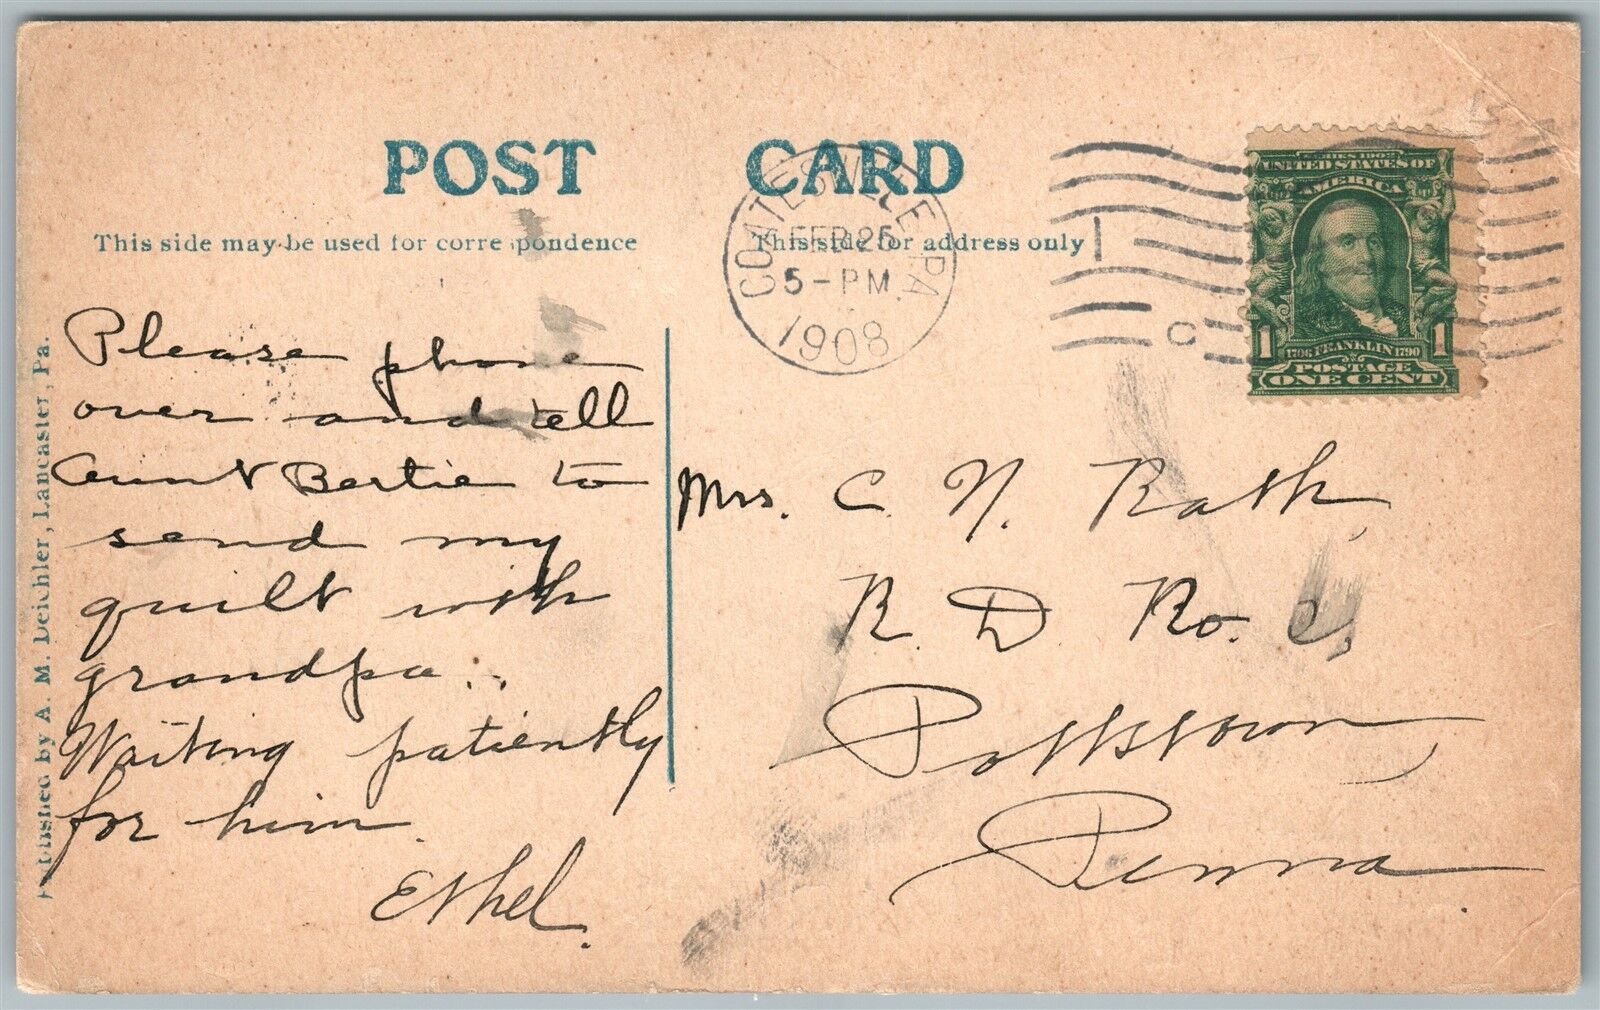 POST CARD
This side may be used for correspondence
This side for address only
COATESVILLE, PA.
FEB 25
5-PM
1908
1
C
SERIES 1902
UNITED STATES OF
AMERICA
1 1
1706 FRANKLIN 1790
POSTAGE
ONE CENT
Please phone
over and tell
Aunt Bertie to
send my
quilt with
grandpa..
Waiting patiently
for him.
Ethel.
Mrs. C. N. Rath,
R. D. No.
Pottstown,
Penna.
Published by A. M. Deichler, Lancaster, Pa.